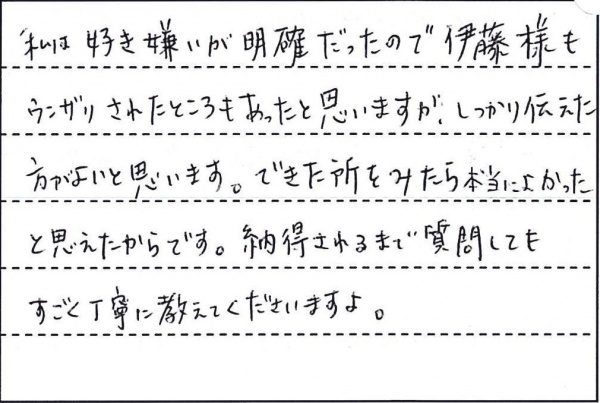 私は好き嫌いが明確だったので伊藤様も
ウンザリされたところもあったと思いますが、しっかり伝えた
方がよいと思います。できた所をみたら本当によかった
と思えたからです。納得されるまで質問しても
すごく丁寧に教えてくださいますよ。